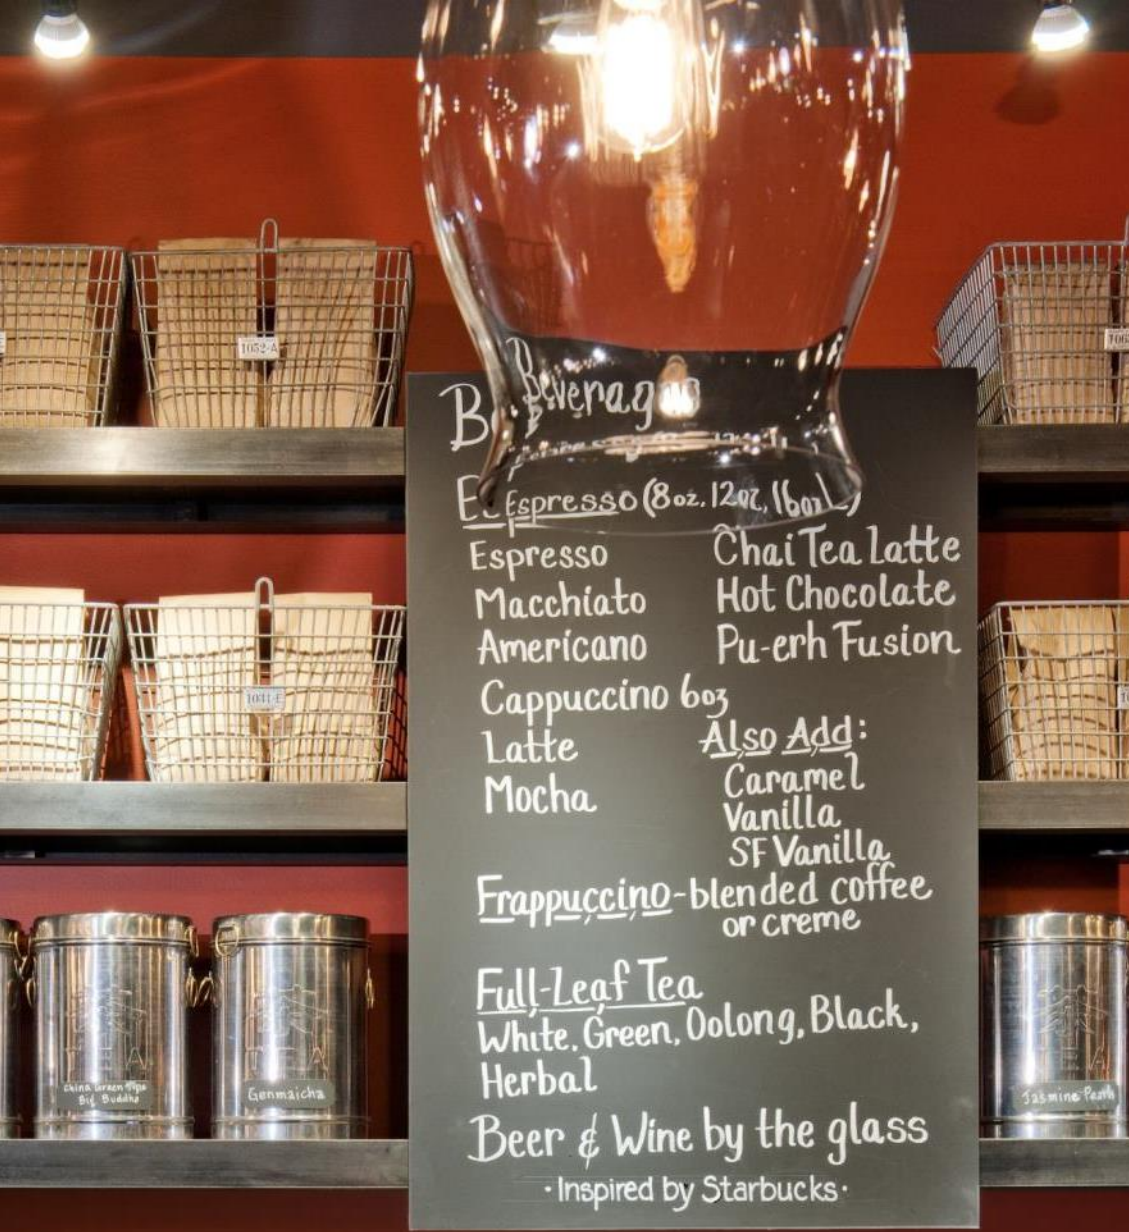 1052-A
1031-E
Beverages
Espresso (8oz, 12oz, 16oz)
Espresso
Macchiato
Americano
Cappuccino 6oz
Latte
Mocha
Chai Tea Latte
Hot Chocolate
Pu-erh Fusion
Also Add:
Caramel
Vanilla
SF Vanilla
Frappuccino-blended coffee
or creme
Full-Leaf Tea
White, Green, Oolong, Black,
Herbal
Beer & Wine by the glass
·Inspired by Starbucks·
TEA
China Green Tips
Big Buddha
TEA
Genmaicha
Jasmine Pearls